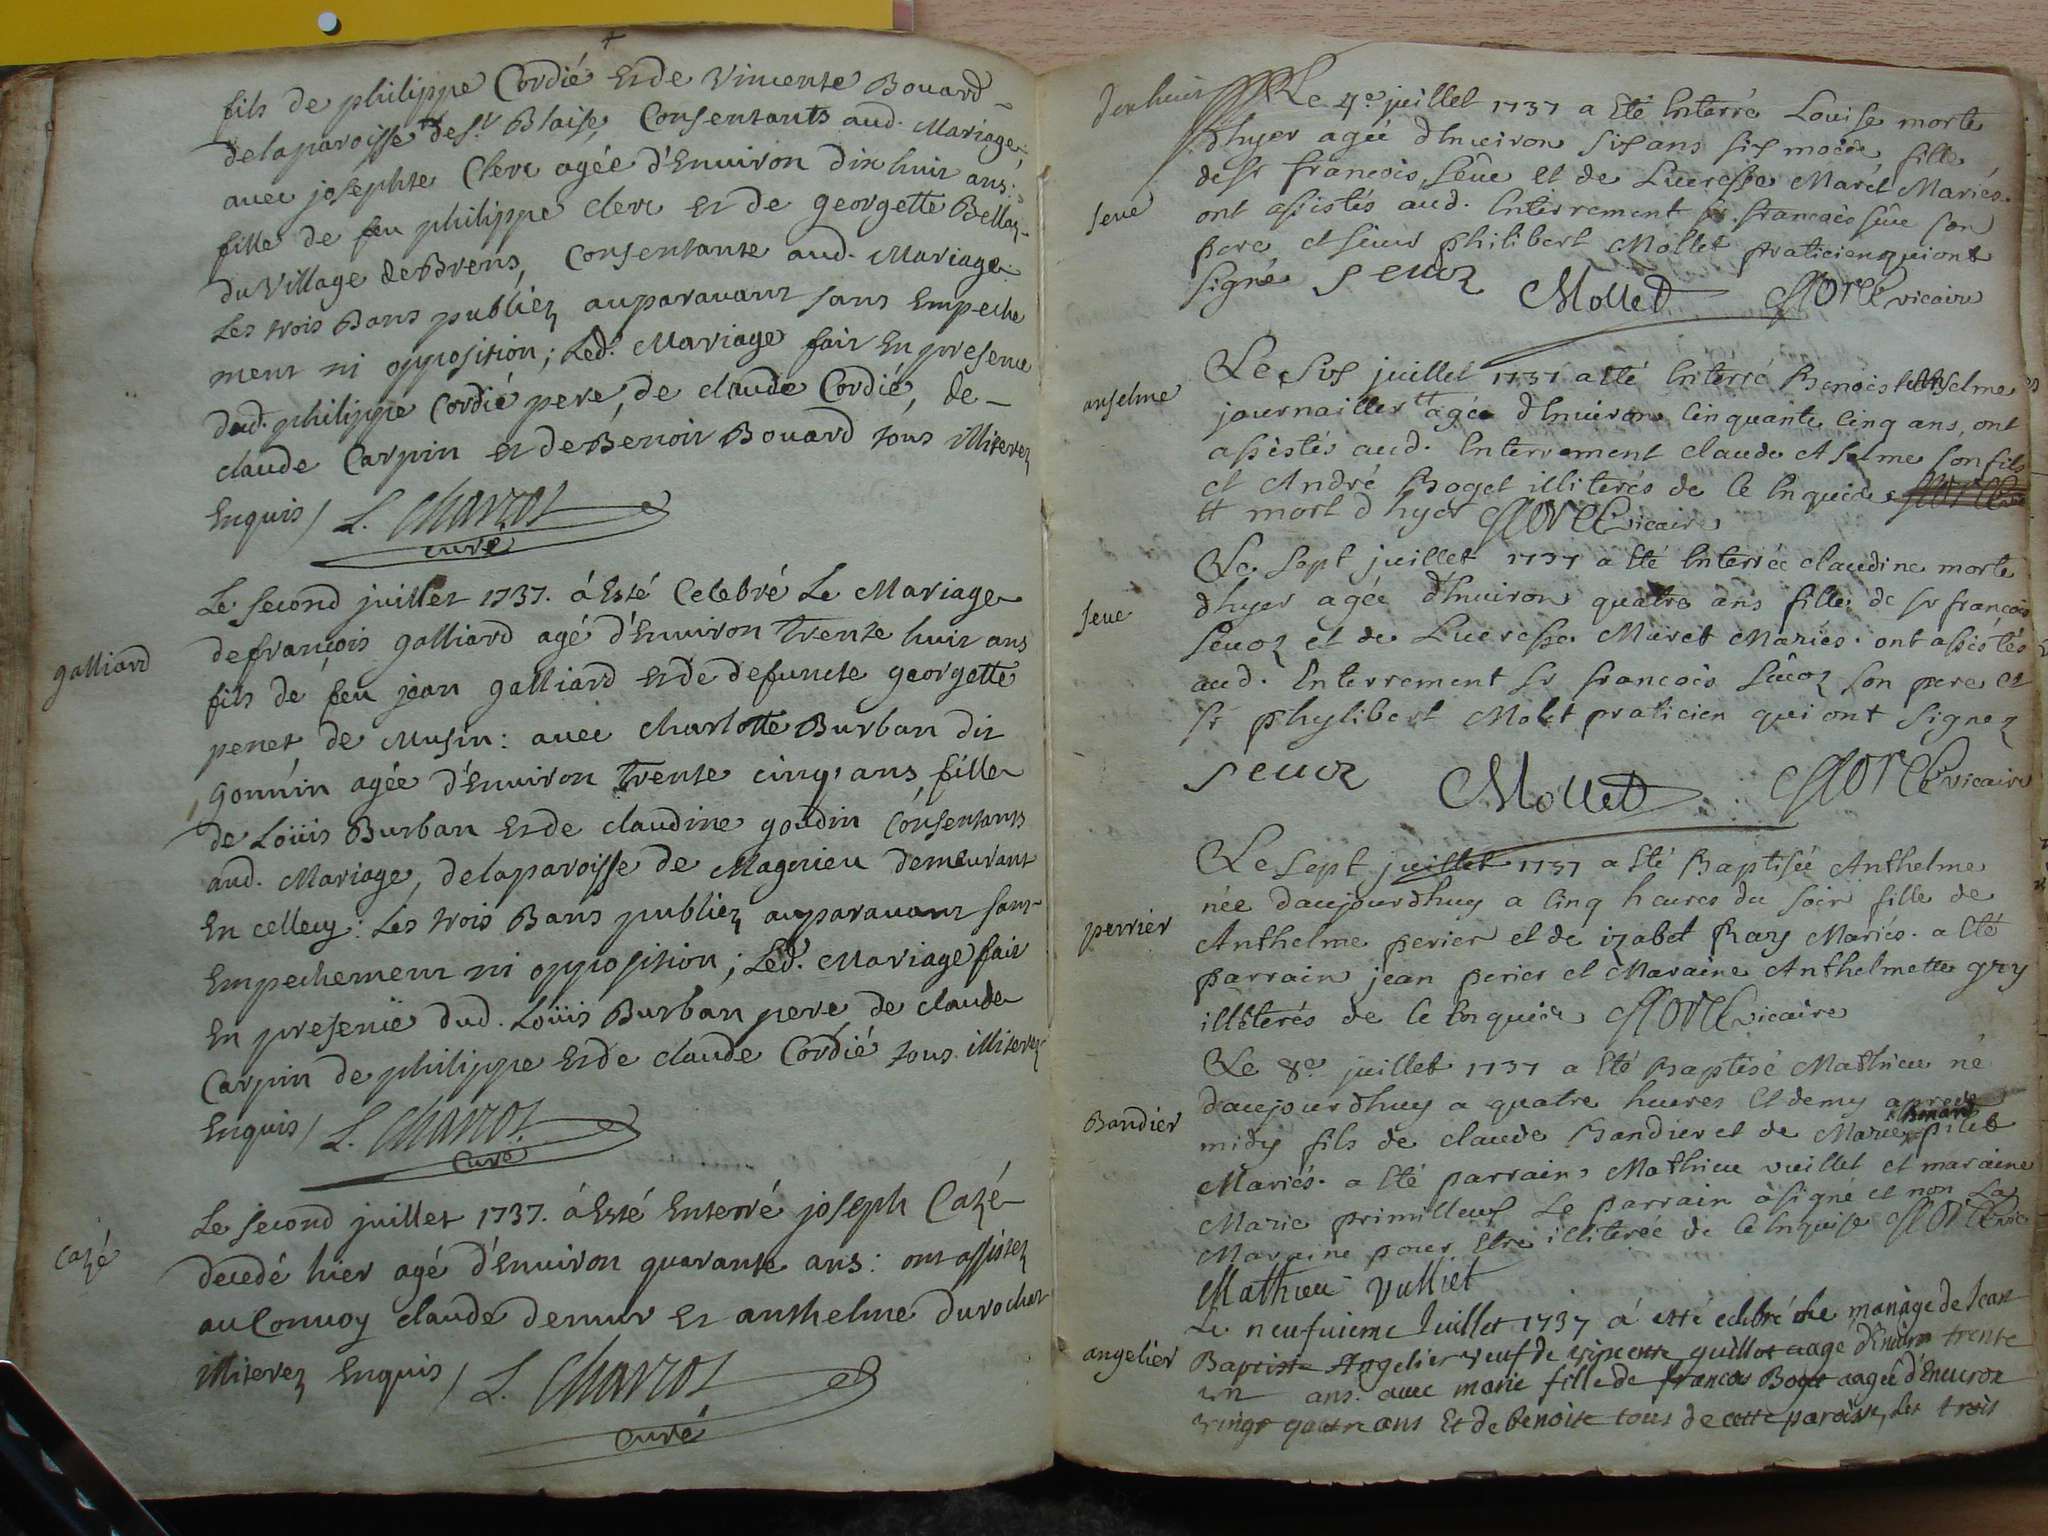 fils de philippe Cordié et de Vincente Bouard
de la paroisse de St Blaise, Consentants aud. Mariage,
avec josephte Clerc agée d'Environ dix huit ans
fille de feu philippe clerc et de georgette Bellaz
du Village de Brens, Consentante aud. Mariage
Les trois Bans publiez auparavant sans Empeche
ment ni opposition; Led. Mariage fait En presence
dud. philippe Cordié pere, de claude Cordié, de
claude Carpin et de Benoit Bouard tous illiterez
Enquis / L. Charzot
curé
galliard
Le second juillet 1737. á Esté Celebré Le Mariage
de françois galliard agé d'Environ trente huit ans
fils de feu jean galliard et de defuncte georgette
penet de Musin: avec charlotte Burban dit
gonnin agée d'Environ trente cinq ans, fille
de Loüis Burban et de claudine goudin Consentants
aud. Mariage, de la paroisse de Magnieu demeurant
En cellecy: Les trois Bans publiez auparavant sans
Empechement ni opposition; Led. Mariage fait
En presence dud. Loüis Burban pere de claude
Carpin de philippe et de claude Cordié tous illiterez
Enquis / L. Charzot
Curé
Cazé
Le second juillet 1737. á Esté Enterré joseph Cazé
decedé hier agé d'Environ quarante ans: ont assistez
au Convoy claude demur et anthelme durochat
illiterez Enquis / L. Charzot
Curé
Le 4e juillet 1737 a Eté Enterré Louise morte
d'hyer agée d'Environ six ans six mois fille
seue
de Sr francois Sêue et de Lucresse Maret Mariés.
ont assistés aud. Enterrement sr. francois sêue son
pere et sieur philibert Mollet praticien qui ont
signé seuoz Mollet vicaire
anselme
Le six juillet 1737 a Eté Enterré Benoist Anselme
journaillier # agée d'Environ Cinquante Cinq ans, ont
assistés aud. Enterrement claude Aselme son fils
et André Boget illiterés de ce Enquis
# mort d'hyer vicaire
seue
Le sept juillet 1737 a Eté Enterrée claudine morte
d'hyer agée d'Environ quatre ans fille de sr francois
seuoz et de Lucresse Muret Mariés. ont assistés
aud. Enterrement sr francois Sêuoz son pere et
sr phylibert Molet praticien qui ont signez
seuoz Mollet vicaire
perrier
Le sept juillet 1737 a Eté Baptisée Anthelme
née d'aujourdhuy a Cinq heures du soir fille de
Anthelme perier et de izabet Ray Mariés. a Eté
parrain jean perier et Maraine Anthelmette gry
illiterés de ce Enquis vicaire
Bandier
Le 8e juillet 1737 a Eté Baptisé Mathieu né
d'aujourdhuy a quatre heures Et demy apres
midy fils de claude Bandier et de Marie pilet
Mariés. a Eté parrain Mathieu vuillet et maraine
Marie primilleux Le parrain à signé et non La
Maraine pour Etre illiterée de ce Enquise
Mathieu Vulliet
angelier
Le neufuieme Juillet 1737 á esté celebré le mariage de Jean
Baptiste Angelier veuf de vincente guillot aagé d'Environ trente
un ans. avec marie fille de francois Boget aagée d'Environ
vingt quatre ans Et de benoite tous de cette paroisse, Les trois